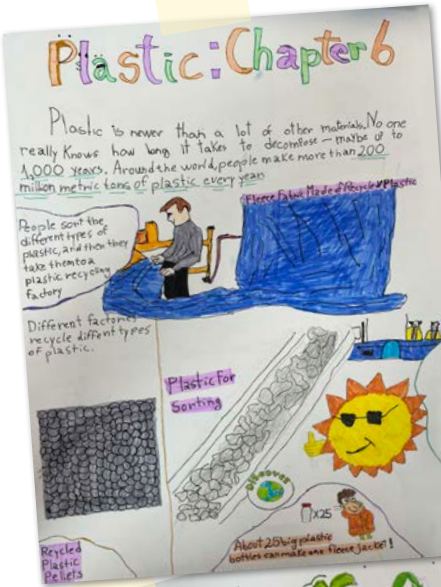 Plastic: Chapter 6
Plastic is newer than a lot of other materials. No one
really knows how long it takes to decompose – maybe up to
1,000 years. Around the world, people make more than 200
million metric tons of plastic every year
Fleece Fabric Made of Recycled Plastic
People sort the
different types of
plastic, and then they
take them to a
plastic recycling
factory
Different factories
recycle diffent types
of plastic.
Plastic For
Sorting
DISCOVER
X25
About 25 big plastic
bottles can make one fleece jacket!
Recycled
Plastic
Pellets